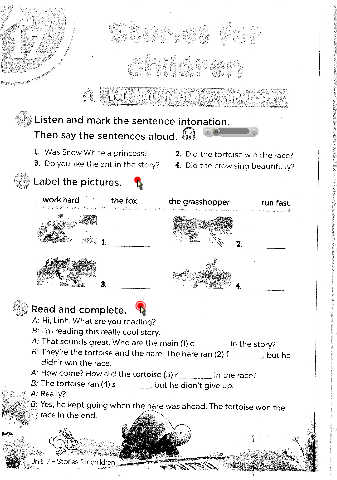 Stories for
children
A
Listen and mark the sentence intonation.
Then say the sentences aloud.
1. Was Snow White a princess? 2. Did the tortoise win the race?
3. Do you like the ant in the story? 4. Did the crow sing beautifully?
Label the pictures.
work hard the fox the grasshopper run fast
1. 2.
3. 4.
Read and complete.
A: Hi, Linh. What are you reading?
B: I'm reading this really cool story.
A: That sounds great. Who are the main (1) c in the story?
B: They're the tortoise and the hare. The hare ran (2) f , but he
didn't win the race.
A: How come? How did the tortoise (3) r in the race?
B: The tortoise ran (4) s , but he didn't give up.
A: Really?
B: Yes, he kept going when the hare was ahead. The tortoise won the
race in the end.
Unit 7 - Stories for children